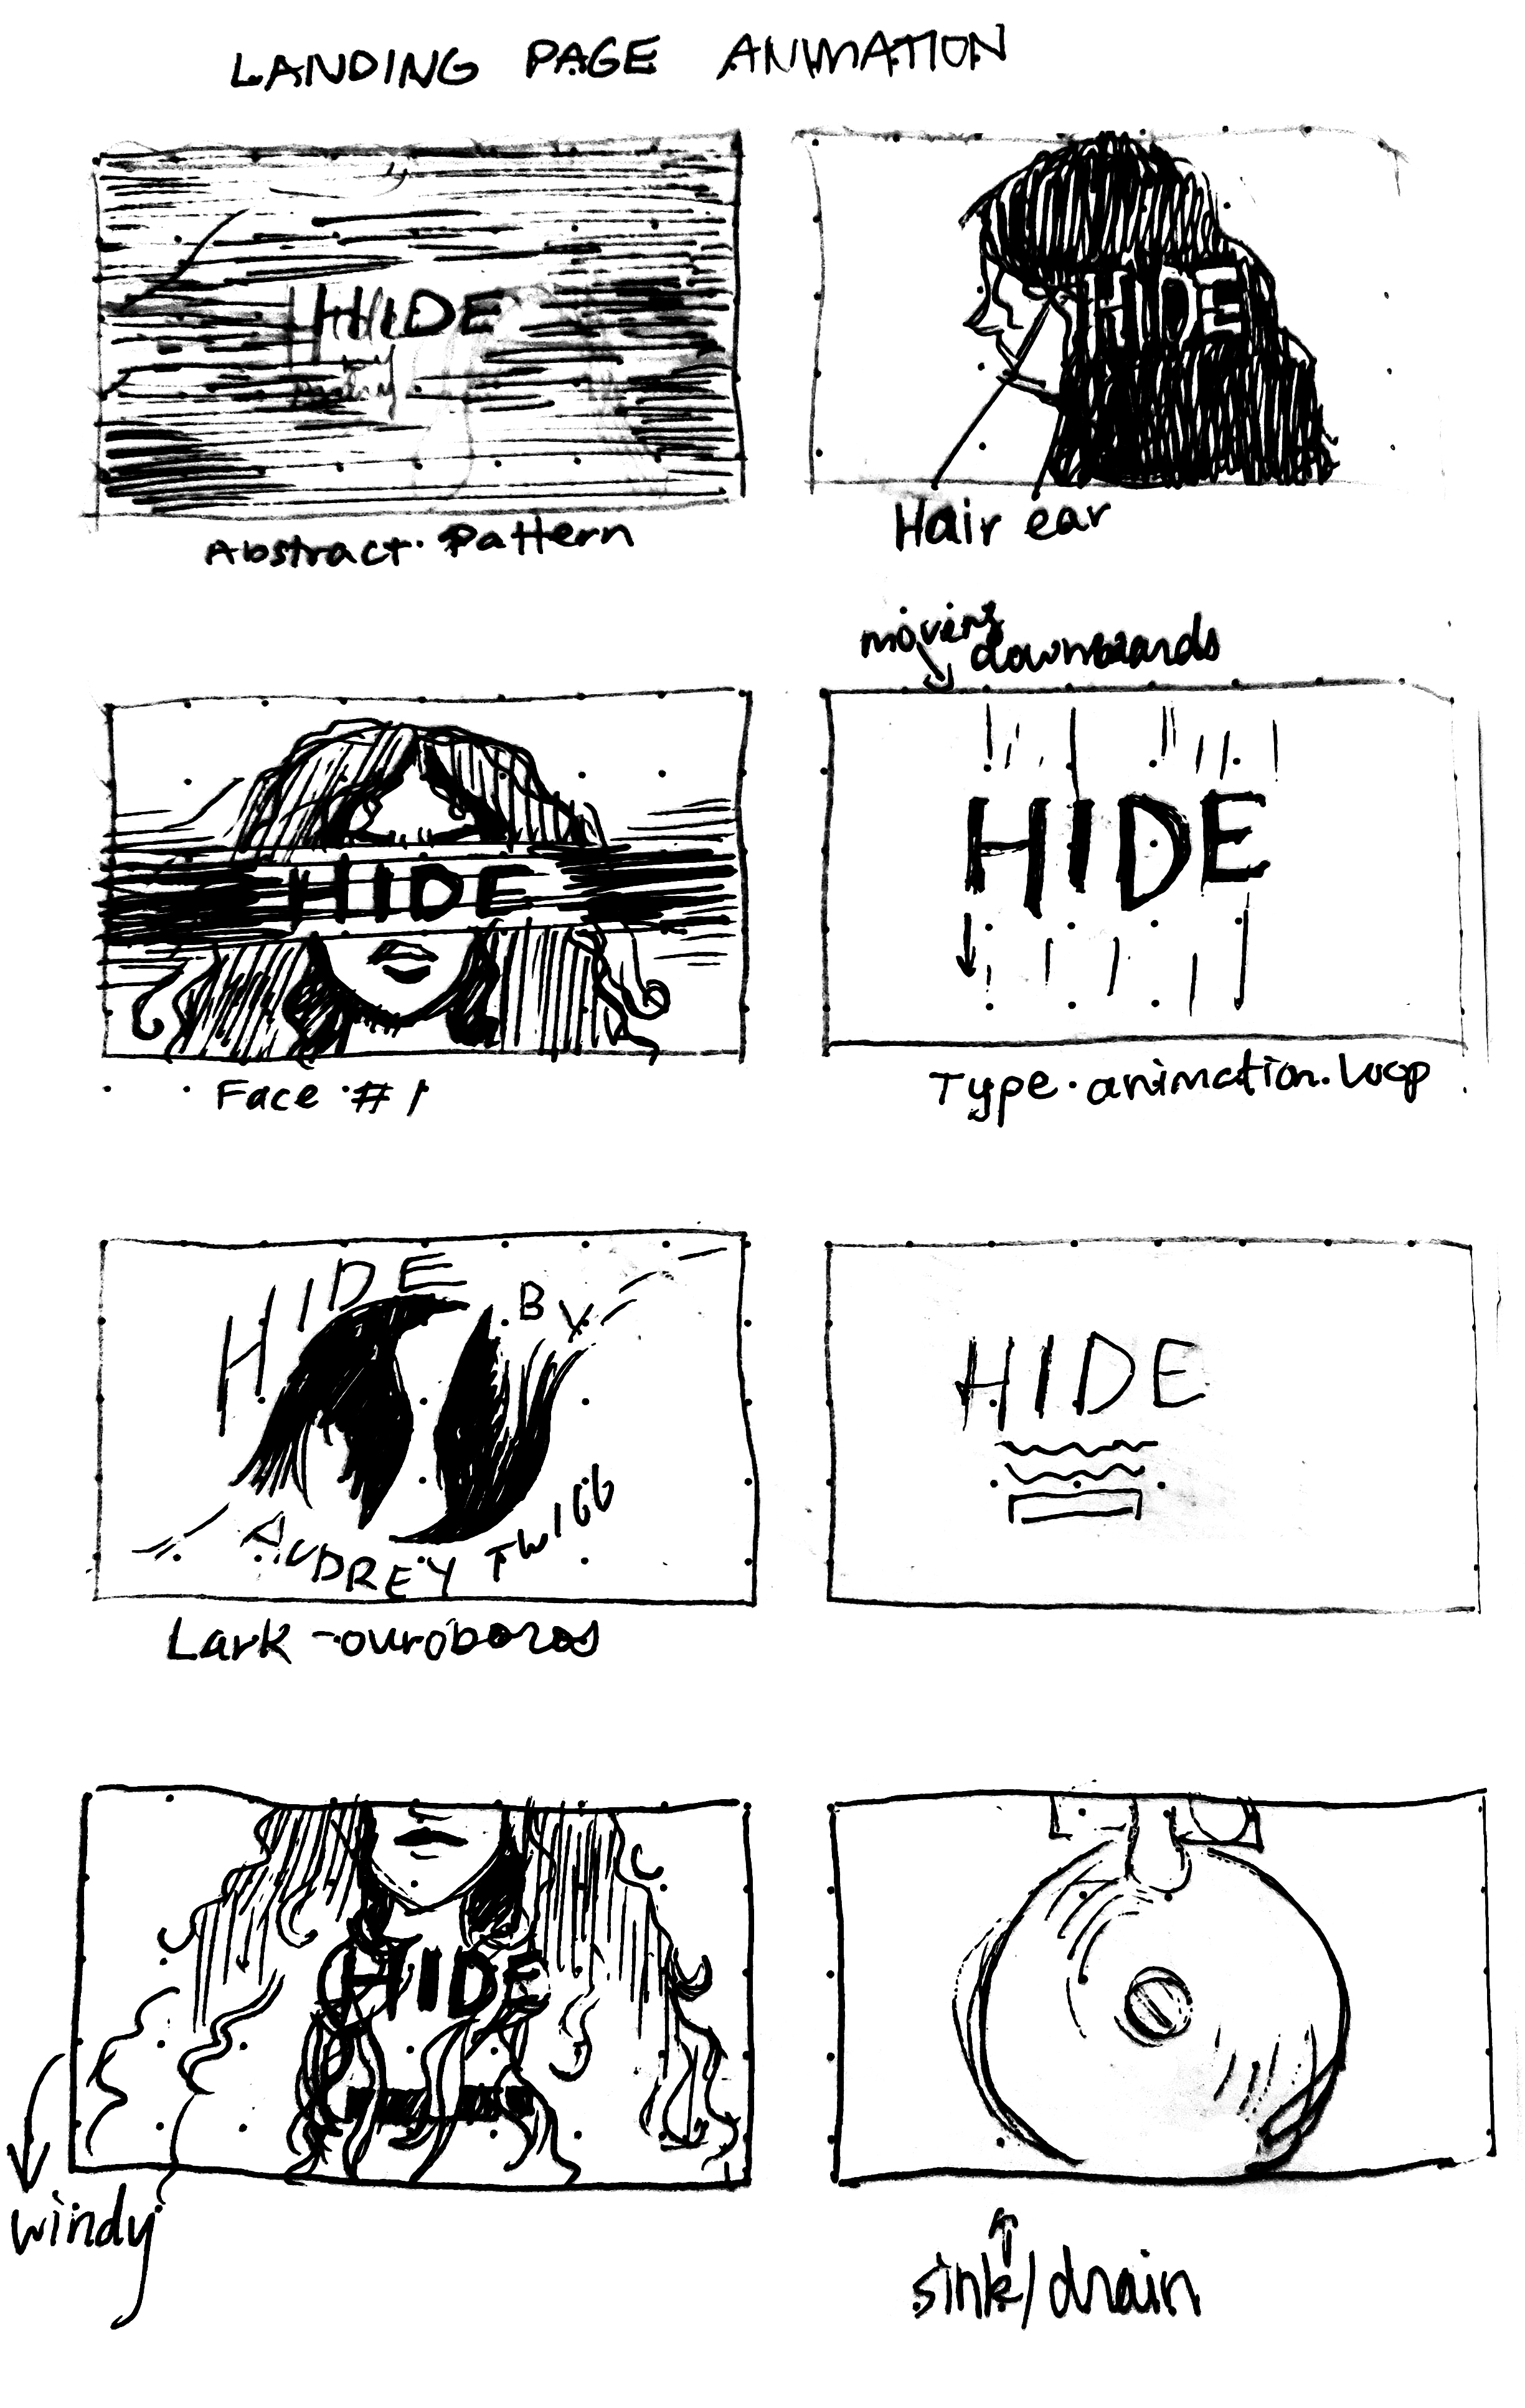 LANDING PAGE ANIMATION
HIDE
by
Abstract Pattern
HIDE
Hair ear
HIDE
Face #1
moving downwards
HIDE
Type animation loop
HIDE BY
AUDREY TWIGG
Lark - ouroboros
HIDE
HIDE
windy
sink/drain